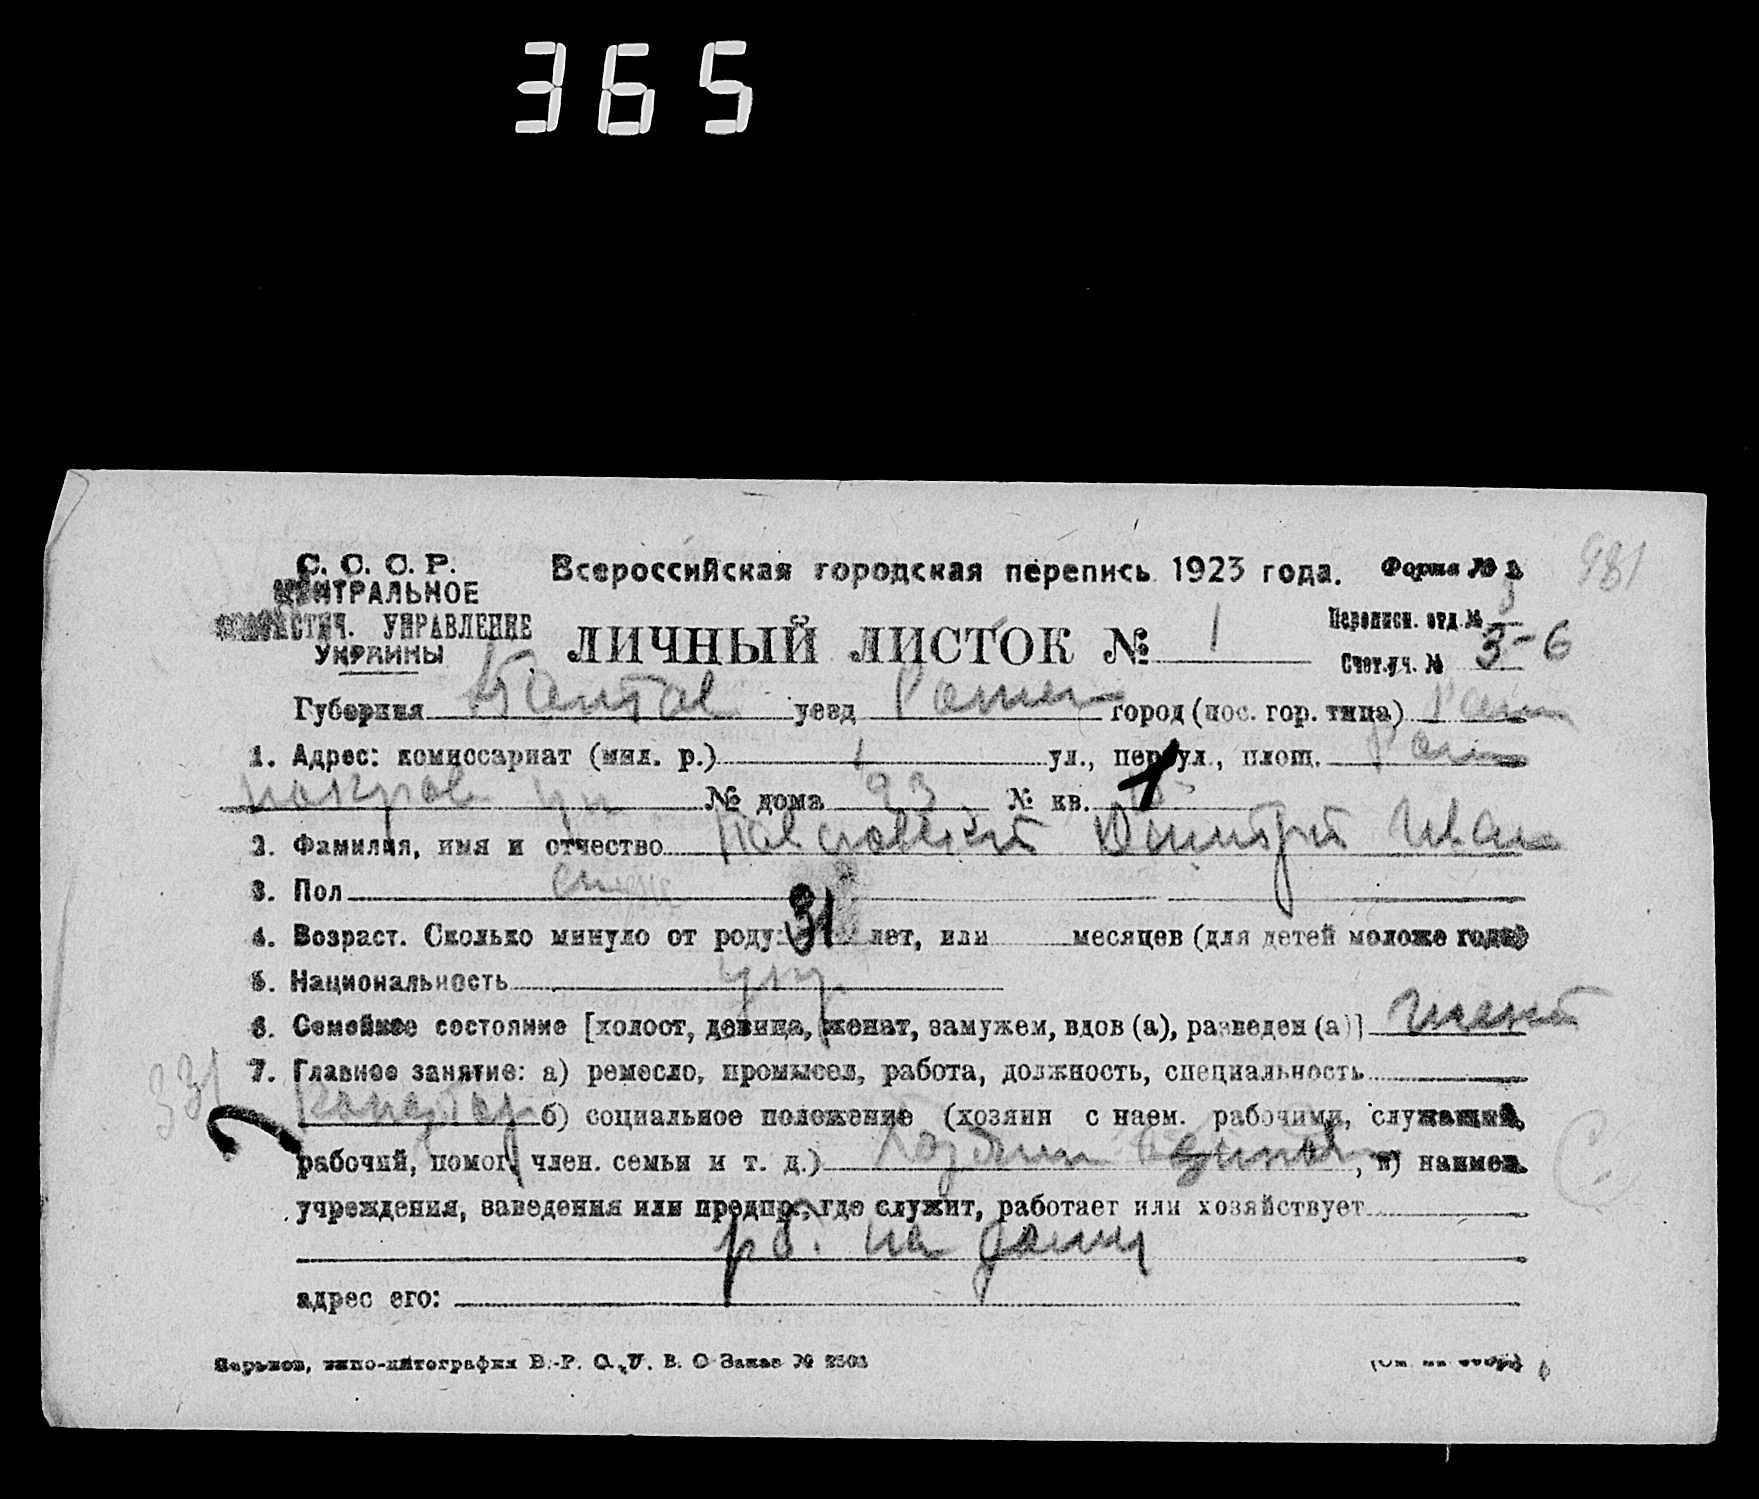 365
С. С. С. Р.
ЦЕНТРАЛЬНОЕ
СТАТИСТИЧ. УПРАВЛЕНИЕ
УКРАИНЫ
Всероссийская городская перепись 1923 года.
Форма №
981
ЛИЧНЫЙ ЛИСТОК № 1
Переписн. отд. №
Счет. уч. № 3-6
Губерния Полтав уезд Ромен город (пос. гор. типа) Ром
1. Адрес: комиссариат (мил. р.) 1 ул., переул., площ. Ром
покров № дома 93 № кв. 1
2. Фамилия, имя и отчество Дмитрий Иван
3. Пол
4. Возраст. Сколько минуло от роду: 31 лет, или месяцев (для детей моложе года)
5. Национальность укр
6. Семейное состояние [холост, девица, женат, замужем, вдов (а), разведен (а)] женат
331
7. Главное занятие: а) ремесло, промысел, работа, должность, специальность
б) социальное положение (хозяин с наем. рабочими, служащий,
рабочий, помог. член. семьи и т. д.) , в) наимен.
учреждения, заведения или предпр., где служит, работает или хозяйствует
раб. на дому
адрес его:
Харьков, типо-литография В.-Р. С. У. В. О Заказ №